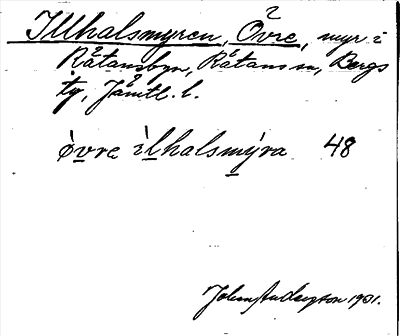 Illhalsmyren, Övre, myr i
Råtansbyn, Råtans sn, Bergs
tg, Jämtl. l.
òvre ìlhalsmýra 48
John Anderson 1901.